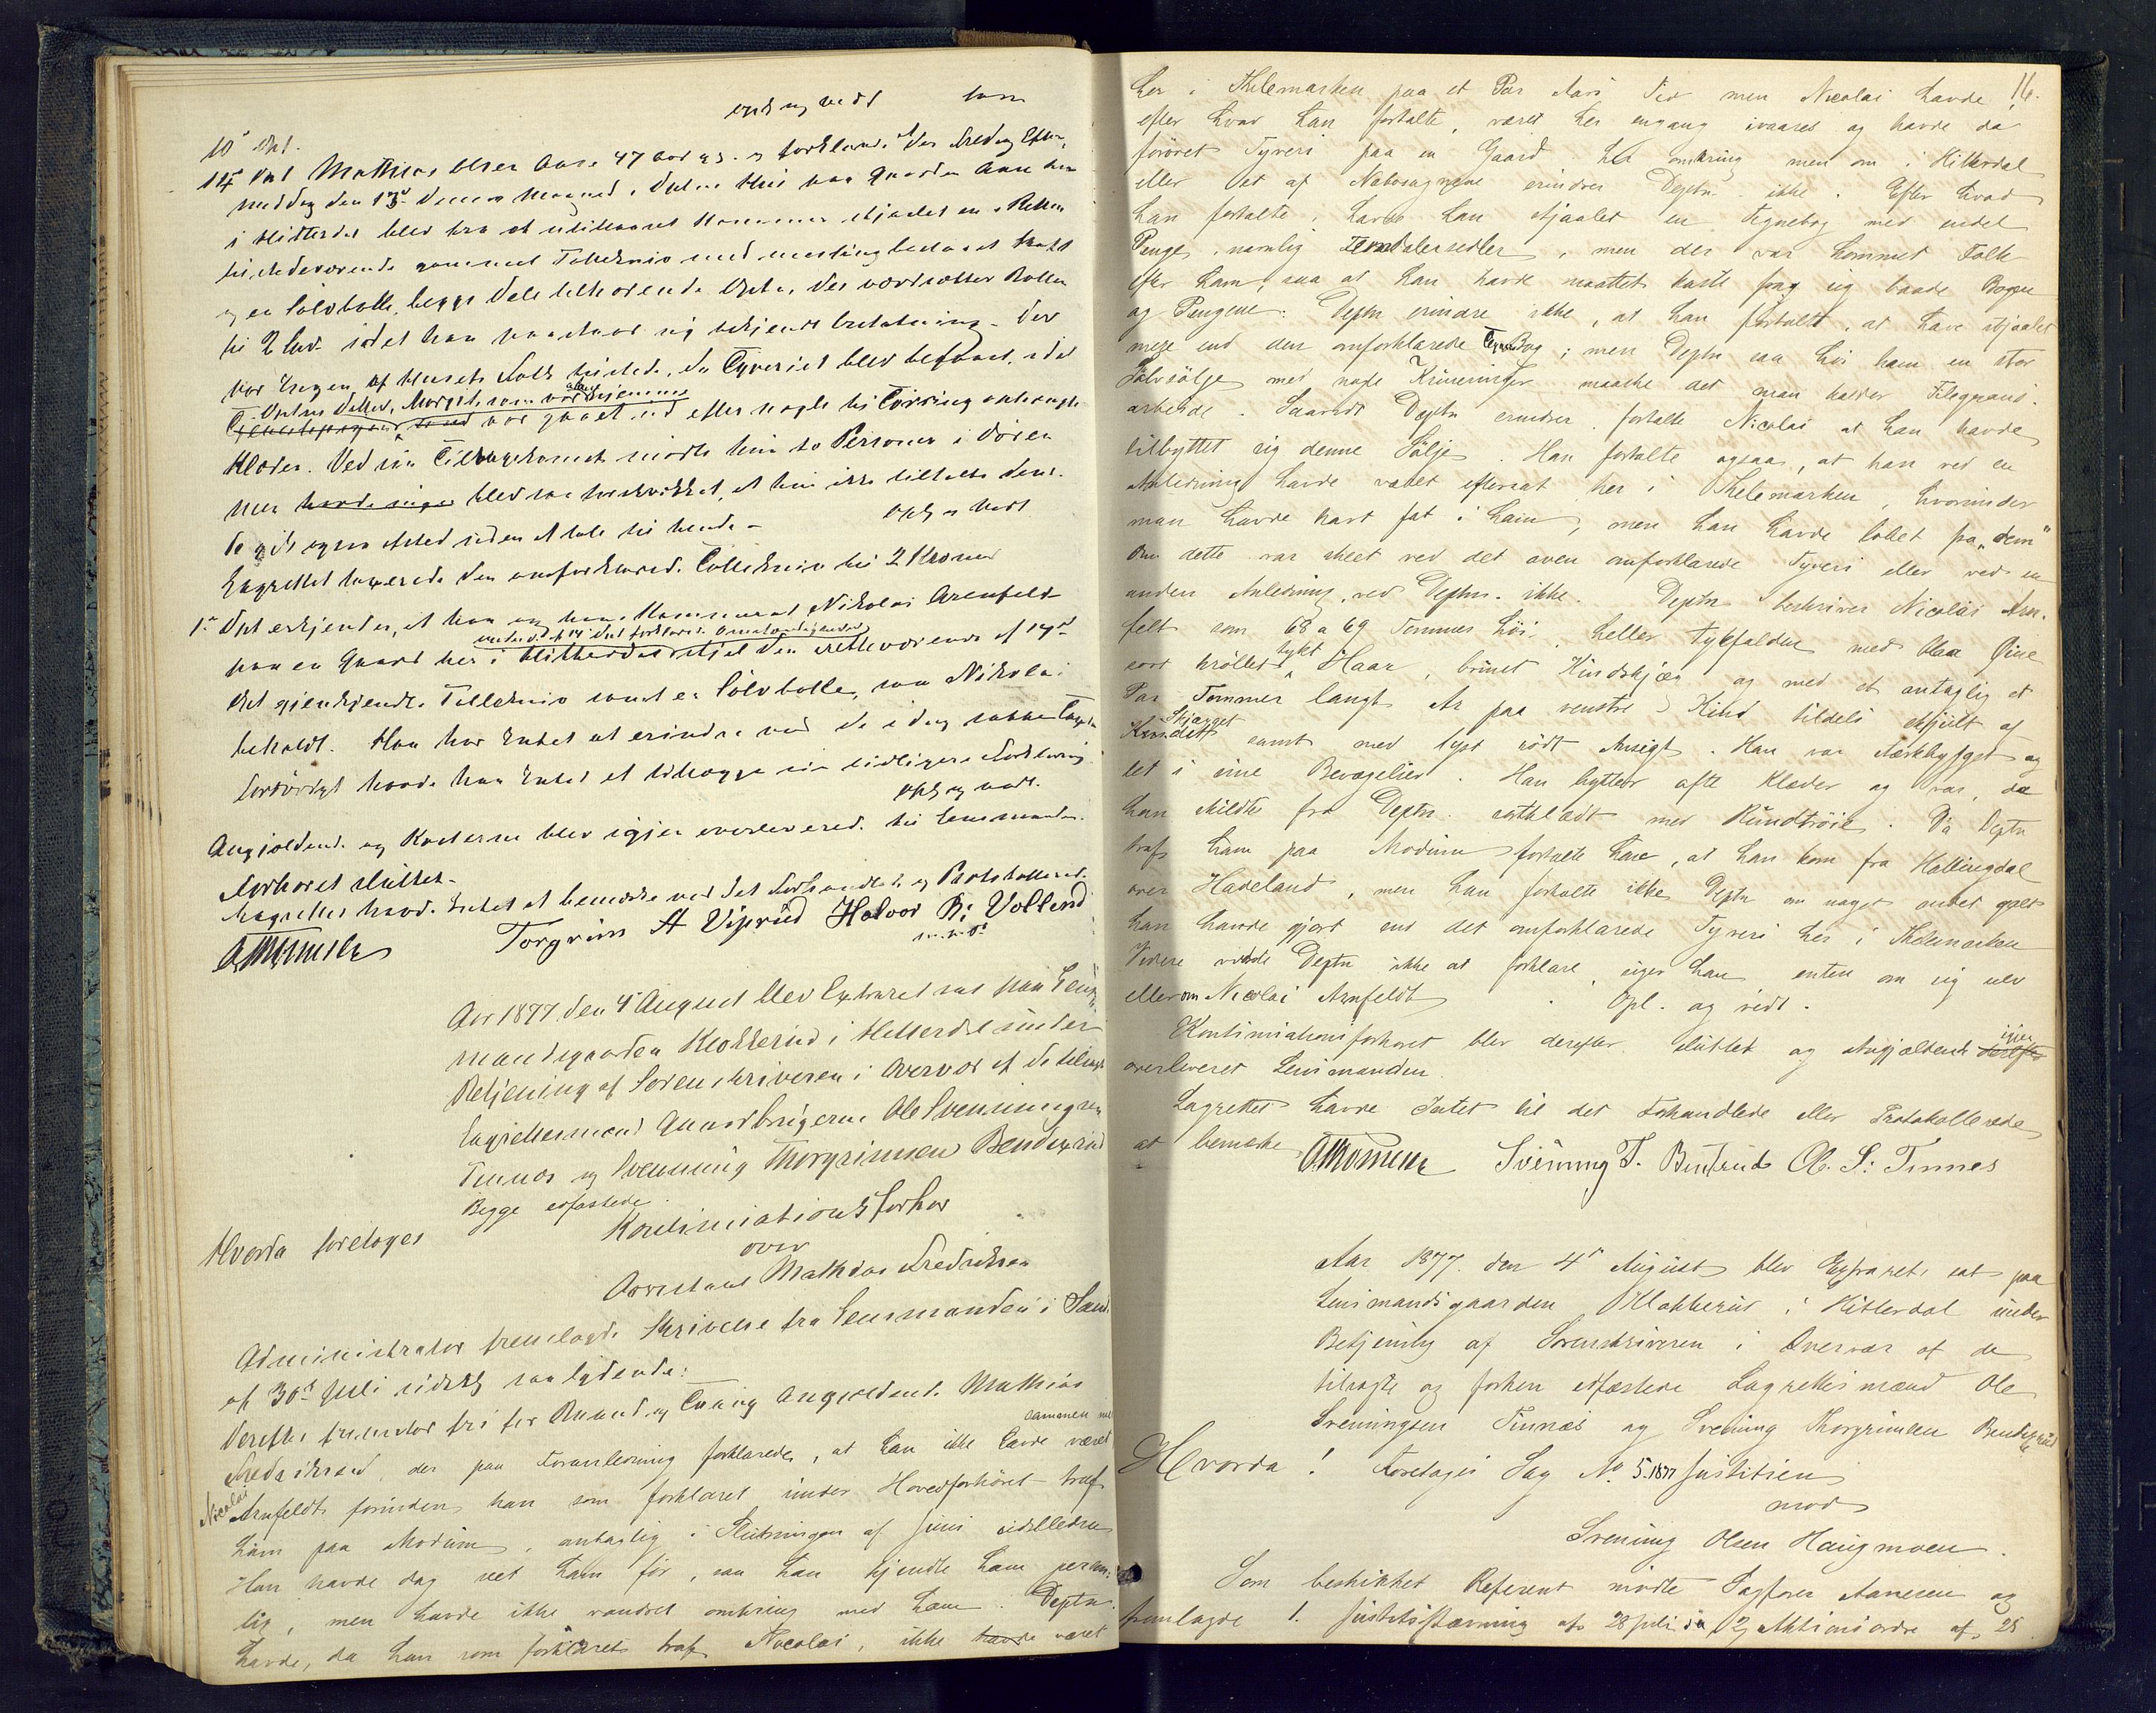 oplæst og vedt som
10de Dpt.
14de Dpt Mathias Olsen Aase 47 Aar gl. og forklarede: Der Fredag Efter-
middag den 13de dennes Maaned i Dptes Huus paa Gaarden Aase her
i Hitterdal blev fra et ulukket Kammer stjaalet en i Retten
tilstedeværende gammel Tollekniv med messingbeslaaet Skaft
og en Sølvbolle, begge Dele tilhørende Dpten, der værdsætter Bollen
til 2 Kr idet han paastaar sig tilkjendt Erstatning. Der
var Ingen af Husets Folk tilstede, da Tyveriet blev begaaet, idet
Dptens Datter, Margit, som var alene hjemme
var gaaet ud efter nogle til Tørring ophængte
Klæder. Ved sin Tilbagekomst mødte hun to Personer i Døren
men havde ingen blev saa forskrækket, at hun ikke tiltalte dem.
De gik ogsaa afsted uden at tale til hende. – Opl. og vedt
Lagrettet taxerede den omforklarede Tollekniv til 2 Kroner
1ste Dpt erkjender, at han og hans Kammerat Nikolai Arenfeldt
under de af 14 Dpt forklarede Omstændigheder
paa en Gaard her i Hitterdal stjal den retteværende af 14de
Dpt gjenkjendte Tollekniv samt en Sølvbolle, som Nikolai
beholdt. Han har Intet at erindre ved de i Dag satte Taxter
Forøvrigt havde han Intet at tillægge sin tidligere Forklaring
Opl. og vedt.
Angjældende og Kosterne blev igjen overleverede til Lensmanden.
Forhøret sluttet.
Lagrettet havde Intet at bemærke ved det Forhandlede og Protokollerede.
AThomesen Torgrim A Viperud Halvor B: Volland
m. p. P.
Aar 1877 den 4 August blev Extraret sat paa Lens-
mandsgaarden Klokkerud i Hitterdal under
Betjening af Sorenskriveren i Overvær af de tilsagte
Lagrettesmænd Gaardbrugerne Ole Svenningsen
Tinnes og Svenning Thorgrimsen Bendixrud
Begge edfæstede.
Hvorda foretages Kontinuationsforhør
over
Arrestant Mathias Fredriksen
Administrator fremlagde Skrivelse fra Lensmanden i Sand.
af 30te Juli sidstl. saalydende:
Derefter fremstod fri for Baand og Tvang Angjældende Mathias
Fredriksen, der paa Foranledning forklarede, at han ikke havde været sammen med
Nicolai Arnfeldt forinden han som forklaret under Hovedforhøret traf
ham paa Modum, antagelig i Slutningen af Juni sidstleden
Han havde dog seet ham før, saa han kjendte ham person-
lig, men havde ikke vandret omkring med ham. Deptn.
havde, da han som forklaret traf Nicolai, ikke havde været
16.
her i Thelemarken paa et Par Aars Tid men Nicolai havde,
efter hvad han fortalte, været her engang ivaares og havde da
forøvet Tyveri paa en Gaard her omkring men om i Hitterdal
eller et af Nabosognene erindrer Deptn ikke. Efter hvad
han fortalte, havde han stjaalet en Tegnebog med endel
Penge, navnlig Femdalersedler, men der var kommet Folk
efter ham, saa at han havde maattet kaste fra sig baade Bogen
og Pengene: Deptn erindrer ikke, at han fortalte, at have stjaalet
mere end den omforklarede Tegnebog; men Deptn saa hos ham en stor
Sølvsølje med nogle Kruseringer maaske det man kalder Filegrans-
arbeide. Saavidt Deptn erindrer, fortalte Nicolai at han havde
tilbyttet sig denne Sølje. Han fortalte ogsaa, at han ved en
Anledning havde været eftersat her i Thelemarken, hvorunder
man havde havt fat i ham, men han havde løbet fra „dem“
Om dette var skeet ved det oven omforklarede Tyveri eller ved en
anden Anledning, ved Deptn. ikke. Deptn beskriver Nicolai Arn-
felt som 68 a 69 Tommer høi, heller tykfalden med blaa Øine
sort krøllet tykt Haar, brunet Kindskjæg og med et antaglig et
Par Tommer langt Ar paa venstre Kind tildels skjult af
Skjægget samt med lyst rødt Ansigt. Han var stærkbygget og
let i sine Bevægelser. Han bytter ofte Klæder og var, da
han skildte fra Deptn. sortklædt med Rundtrøie. Da Deptn
traf ham paa Modum fortalte han, at han kom fra Hallingdal
over Hadeland, men han fortalte ikke Deptn om noget andet galt
han havde gjort end det omforklarede Tyveri her i Thelemarken
Videre vidste Deptn ikke at forklare, siger han, enten om sig selv
eller om Nicolai Arnfeldt. Opl. og vedt.
Kontinuationsforhøret blev derefter sluttet og Angjældende igjen
overleveret Lensmanden.
Lagrettet havde Intet til det Forhandlede eller Protokollerede
at bemærke AThomesen Svenning T. Bentsrud Ol. S: Tinnes
Aar 1877 den 4de August blev Extraret sat paa
Lensmandsgaarden Klokkerud i Hitterdal under
Betjening af Sorenskriveren i Overvær af de
tilsagte og forhen edfæstede Lagrettesmænd Ole
Svenningsen Tinnes og Svening Thorgrimsen Bendixrud
Hvorda! foretages Sag No. 5. 1877 Justitien
mod
Svening Olsen Haugmoen.
Som beskikket Referent mødte Sagfører Aanesen og
fremlagde 1. Justitsstævning af 28 Juli da 2, Aktionsordre af 25